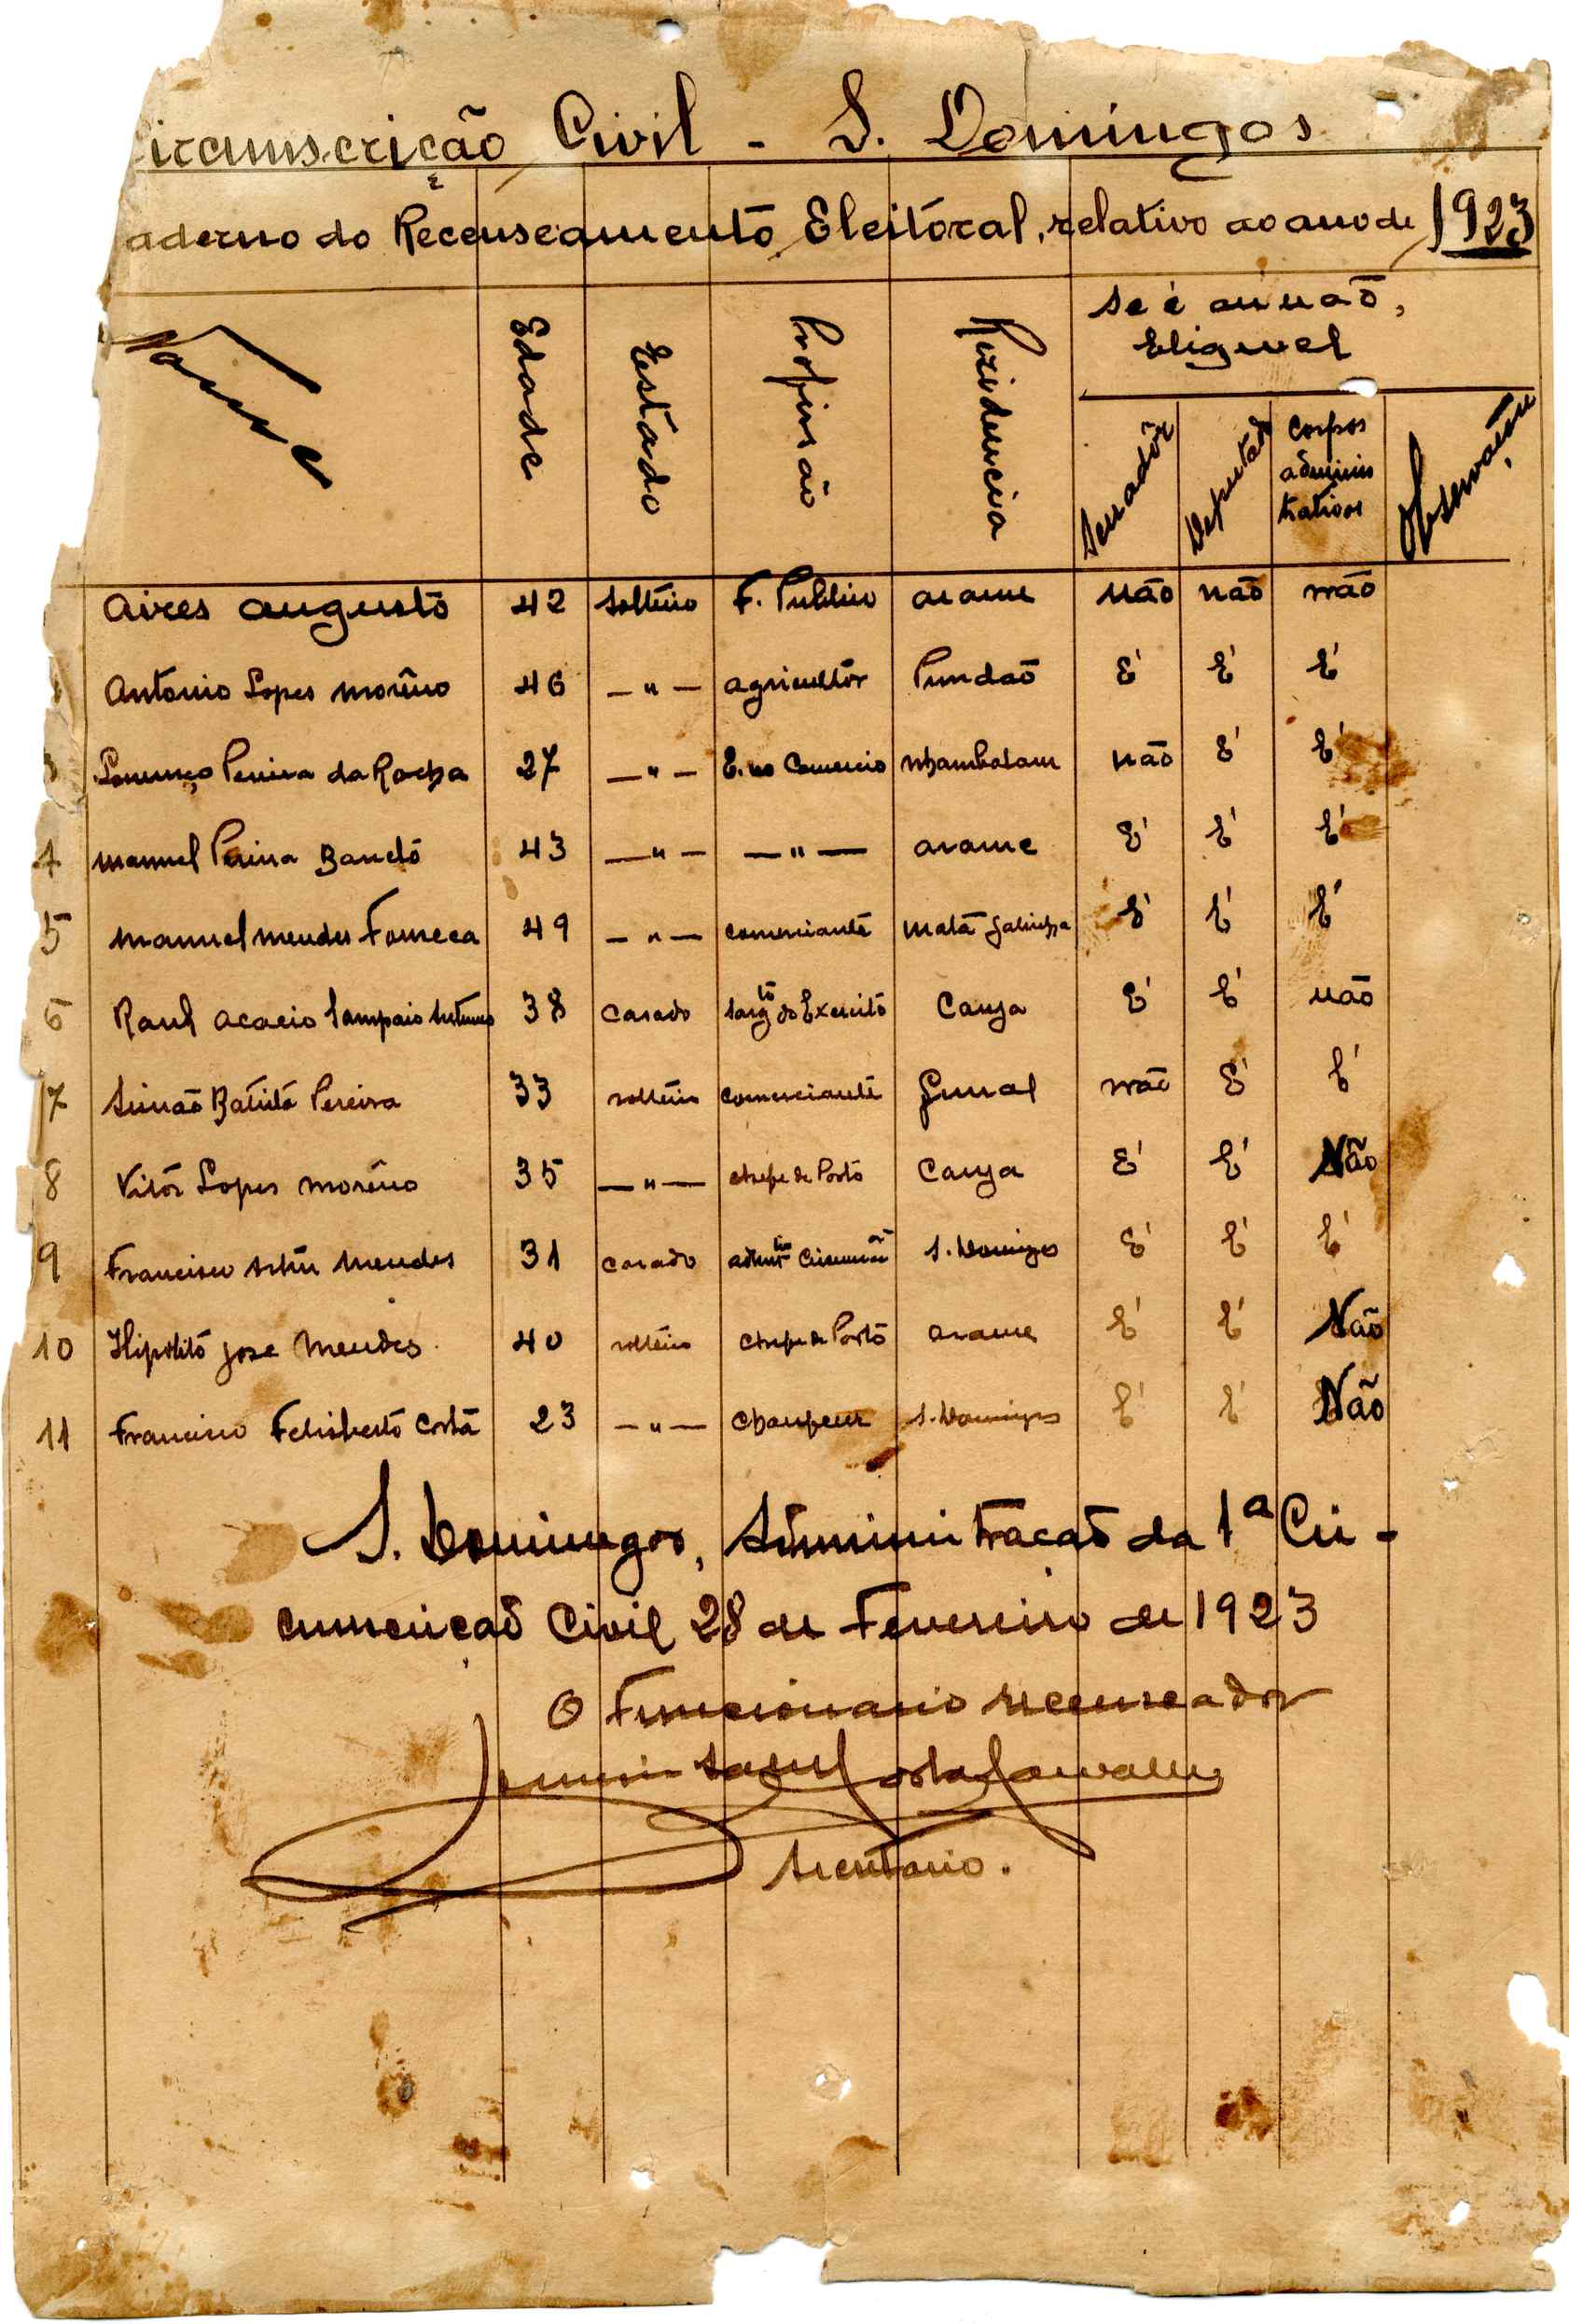 ircunscrição Civil - S. Domingos
aderno do Recenseamento Eleitoral, relativo ao ano de 1923
Nome Edade Estado Profissão Rezidencia
se é ou não,
Eligivel
Senadôr Deputado Corpos adminis trativos Observações
Aires augusto 42 solteiro F. Publico arame não não não
Antonio Lopes morêno 46 —"— agricultôr Pundaõ E' E' E'
3 Lourenço Pereira da Rocha 27 —"— E. no Comercio não E' E'
4 manuel Pereira 43 —"— —"— arame E' E' E'
5 manuel mendes Fonseca 49 —"— comerciante mata galinha E' E' E'
6 Raul acacio Sampaio Antunes 38 casado Sargto do Exercito Canja E' E' não
7 Simão Batista Pereira 33 solteiro comerciante não E' E'
8 Vitór Lopes morêno 35 —"— chefe de Posto Canja E' E' Não
9 Francisco Artur Mendes 31 casado S. Domingos E' E' E'
10 Hipolito jose Mendes 40 solteiro chefe de Posto arame E' E' Não
11 Francisco Felisberto Costa 23 —"— chaufeur S. Domingos E' E' Não
S. Domingos, Administracaõ da 1ª Cir-
cunscricaõ Civil 28 de Fevereiro de 1923
O Funcionario recenseador
Secretario.